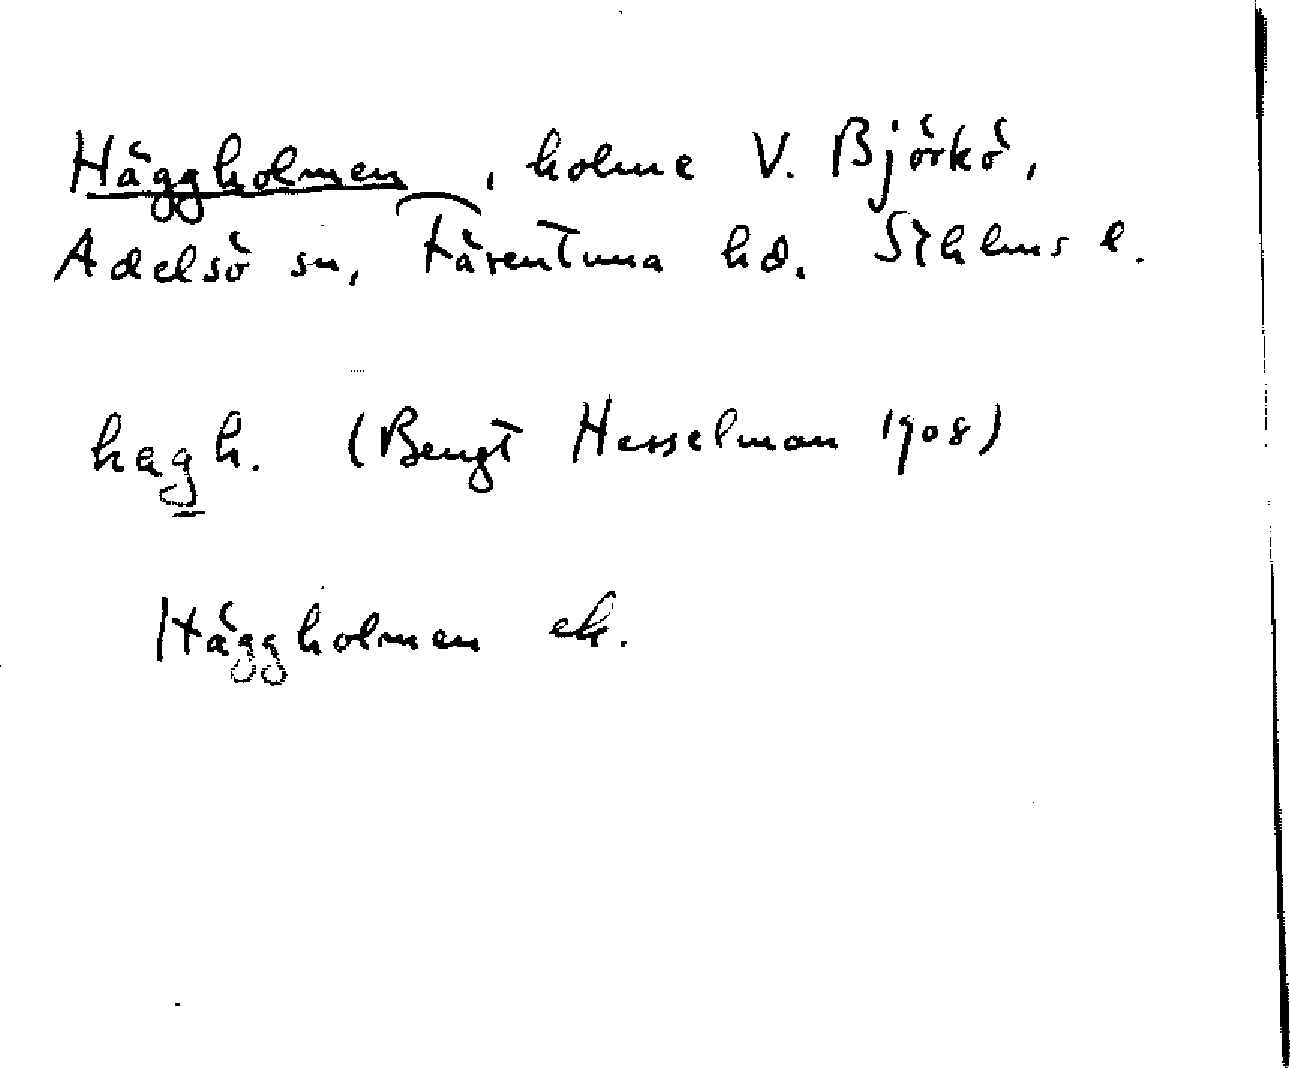 Häggholmen, holme V. Björkö,
Adelsö sn, Färentuna hd. Sthlms l.
hägh. (Bengt Hesselman 1908)
Häggholmen ek.